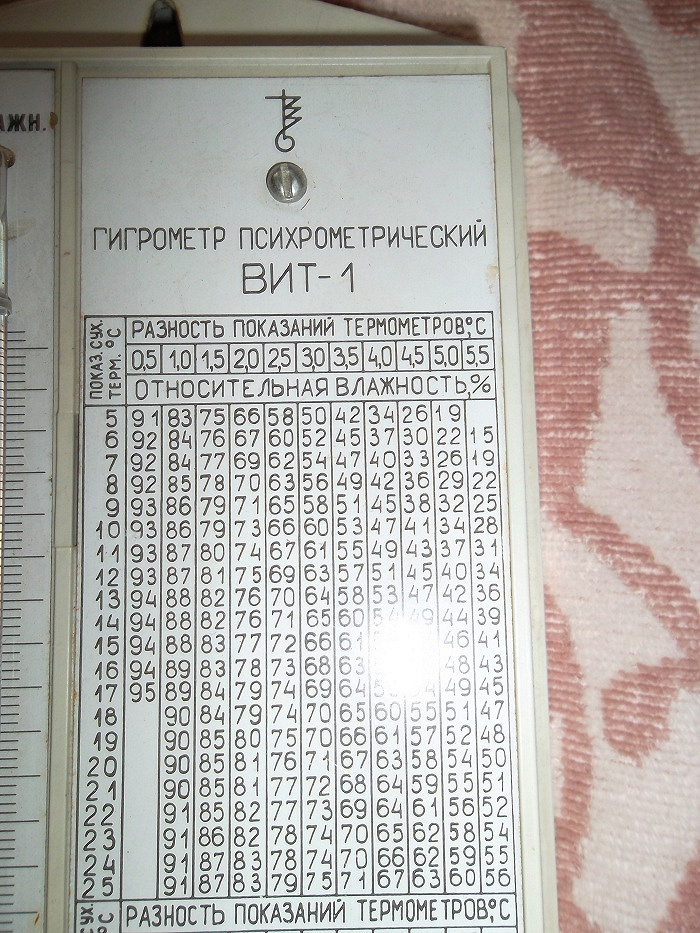 АЖН.
ГИГРОМЕТР ПСИХРОМЕТРИЧЕСКИЙ
ВИТ-1
ПОКАЗ. СУХ. ТЕРМ. °С
РАЗНОСТЬ ПОКАЗАНИЙ ТЕРМОМЕТРОВ,°С
0,5 1,0 1,5 2,0 2,5 3,0 3,5 4,0 4,5 5,0 5,5
ОТНОСИТЕЛЬНАЯ ВЛАЖНОСТЬ,%
5 91 83 75 66 58 50 42 34 26 19
6 92 84 76 67 60 52 45 37 30 22 15
7 92 84 77 69 62 54 47 40 33 26 19
8 92 85 78 70 63 56 49 42 36 29 22
9 93 86 79 71 65 58 51 45 38 32 25
10 93 86 79 73 66 60 53 47 41 34 28
11 93 87 80 74 67 61 55 49 43 37 31
12 93 87 81 75 69 63 57 51 45 40 34
13 94 88 82 76 70 64 58 53 47 42 36
14 94 88 82 76 71 65 60 54 49 44 39
15 94 88 83 77 72 66 61 46 41
16 94 89 83 78 73 68 63 48 43
17 95 89 84 79 74 69 64 49 45
18 90 84 79 74 70 65 60 55 51 47
19 90 85 80 75 70 66 61 57 52 48
20 90 85 81 76 71 67 63 58 54 50
21 90 85 81 77 72 68 64 59 55 51
22 91 85 82 77 73 69 64 61 56 52
23 91 86 82 78 74 70 65 62 58 54
24 91 87 83 78 74 70 66 62 59 55
25 91 87 83 79 75 71 67 63 60 56
СУХ. °С
РАЗНОСТЬ ПОКАЗАНИЙ ТЕРМОМЕТРОВ,°С